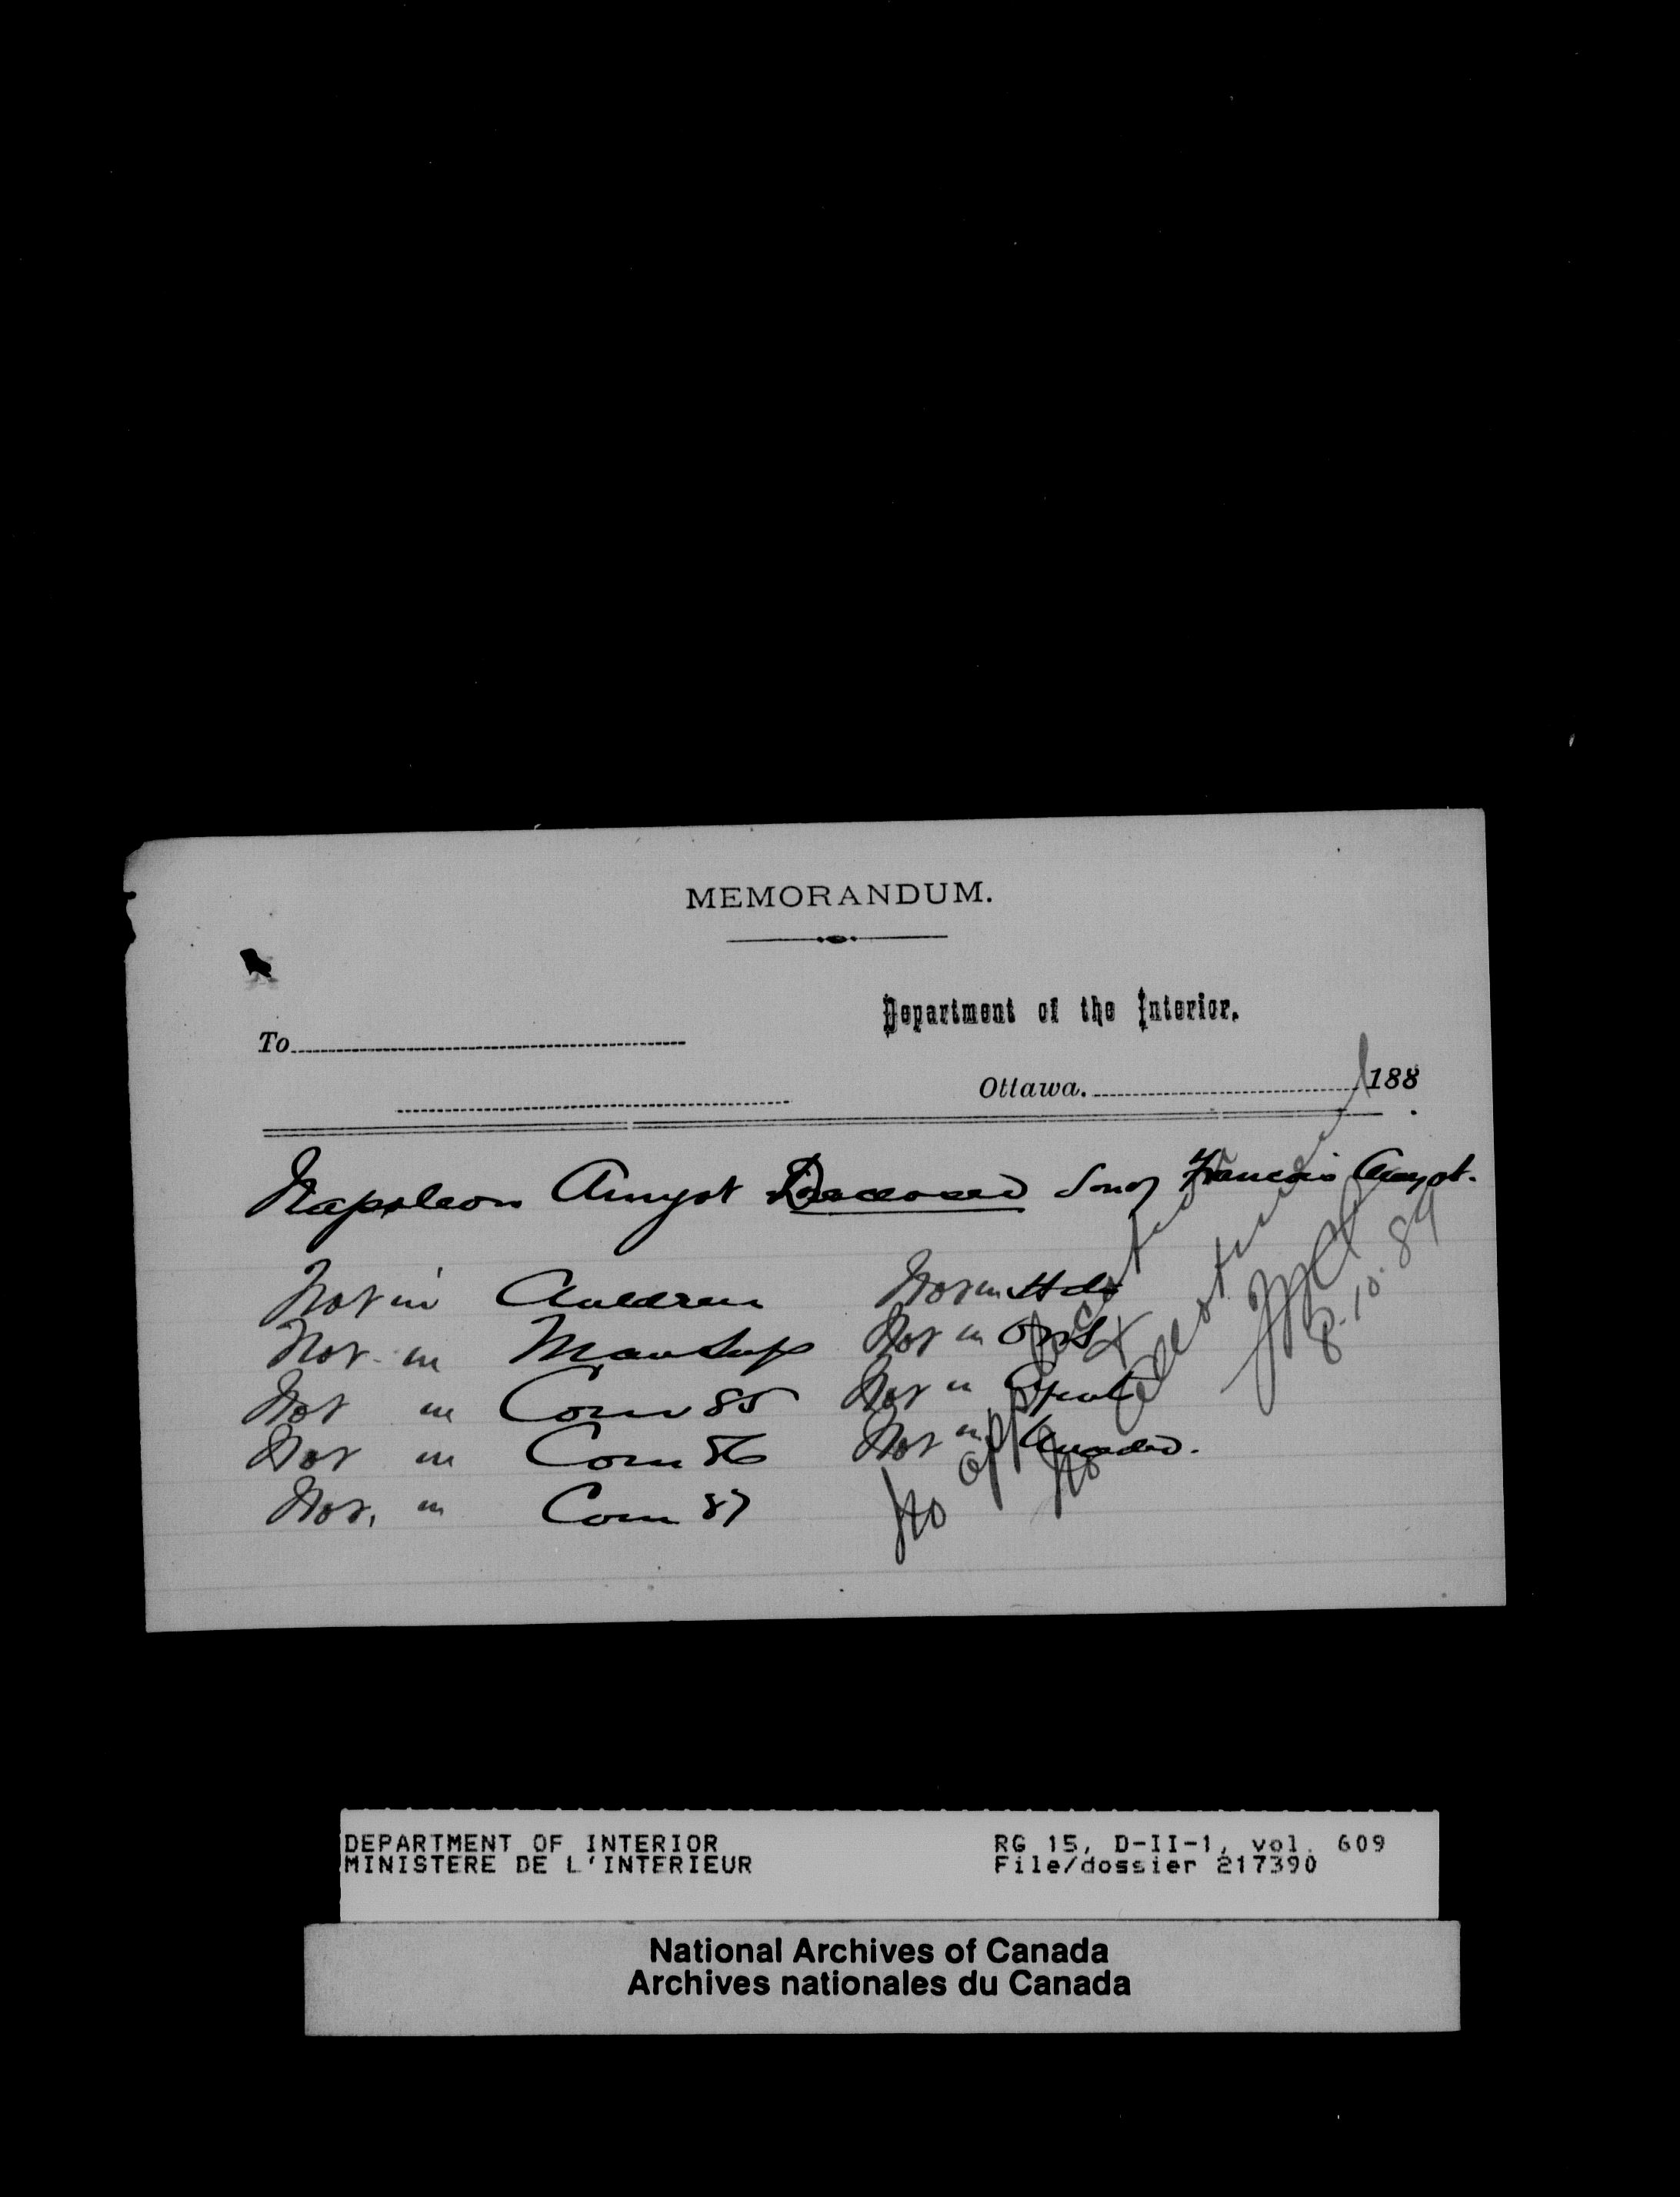 MEMORANDUM.
Department of the Interior.
To
Ottawa. 188
Napoleon Amyot Deceased Son of Francois Amyot.
Not in Children Not in Hds
Not in Man Sup Not in
Not in Com 85 Not in
Not in Com 86 Not in
Not in Com 87
No application
No
8.10.89
DEPARTMENT OF INTERIOR RG 15, D-II-1, vol. 609
MINISTERE DE L'INTERIEUR File/dossier 217390
National Archives of Canada
Archives nationales du Canada